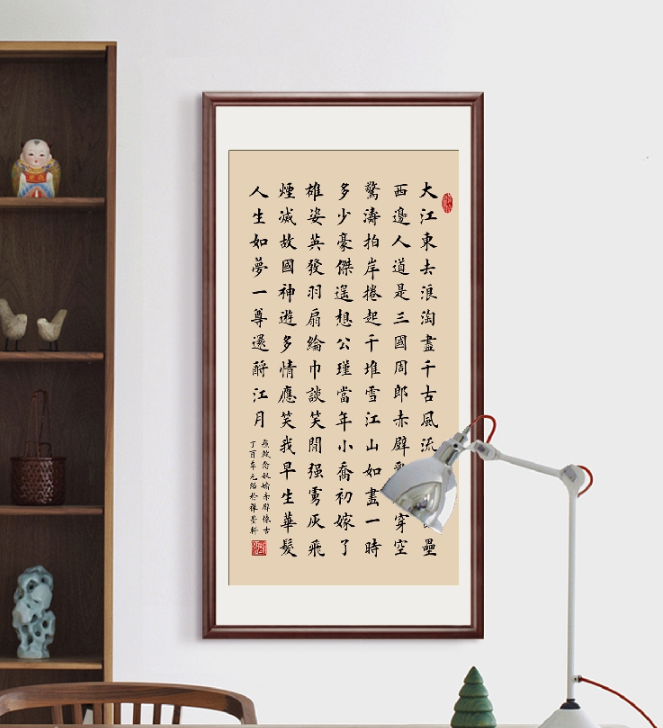 大江東去浪淘盡千古風流壘
西邊人道是三國周郎赤壁穿空
驚濤拍岸捲起千堆雪江山如畫一時
多少豪傑遙想公瑾當年小喬初嫁了
雄姿英發羽扇綸巾談笑間强虜灰飛
煙滅故國神遊多情應笑我早生華髮
人生如夢一尊還酹江月
蘇軾念奴嬌赤壁懷古
丁酉年元於軒